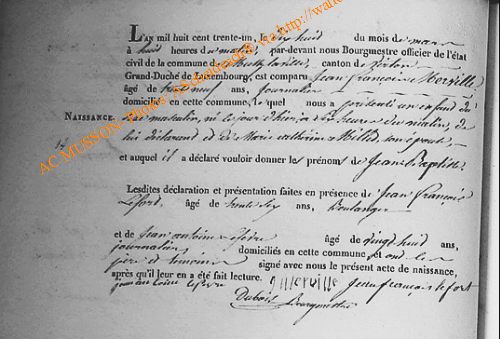 L'AN mil huit cent trente-un, le dix huit du mois de mars
à huit heures du matin, par-devant nous Bourgmestre officier de l'état
civil de la commune de canton de Virton
Grand-Duché de Luxembourg, est comparu Jean François
âgé de trente neuf ans, journalier
domiciliés en cette commune, lequel nous a présenté un enfant du
NAISSANCE. sexe masculin, né le jour d'hier, à heures du matin, de
lui déclarant et de Marie Catherine son épouse,
et auquel il a déclaré vouloir donner les prénoms de Jean Baptiste
Lesdites déclaration et présentation faites en présence de Jean François
Lefort, âgé de trente six ans, Boulanger
et de Jean antoine âgé de vingt huit ans,
journalier, domiciliés en cette commune, et ont les
père et témoins signé avec nous le présent acte de naissance,
après qu'il leur en a été fait lecture.
jean françois lefort
Dubois Bourgmestre
AC MUSSON, Photo